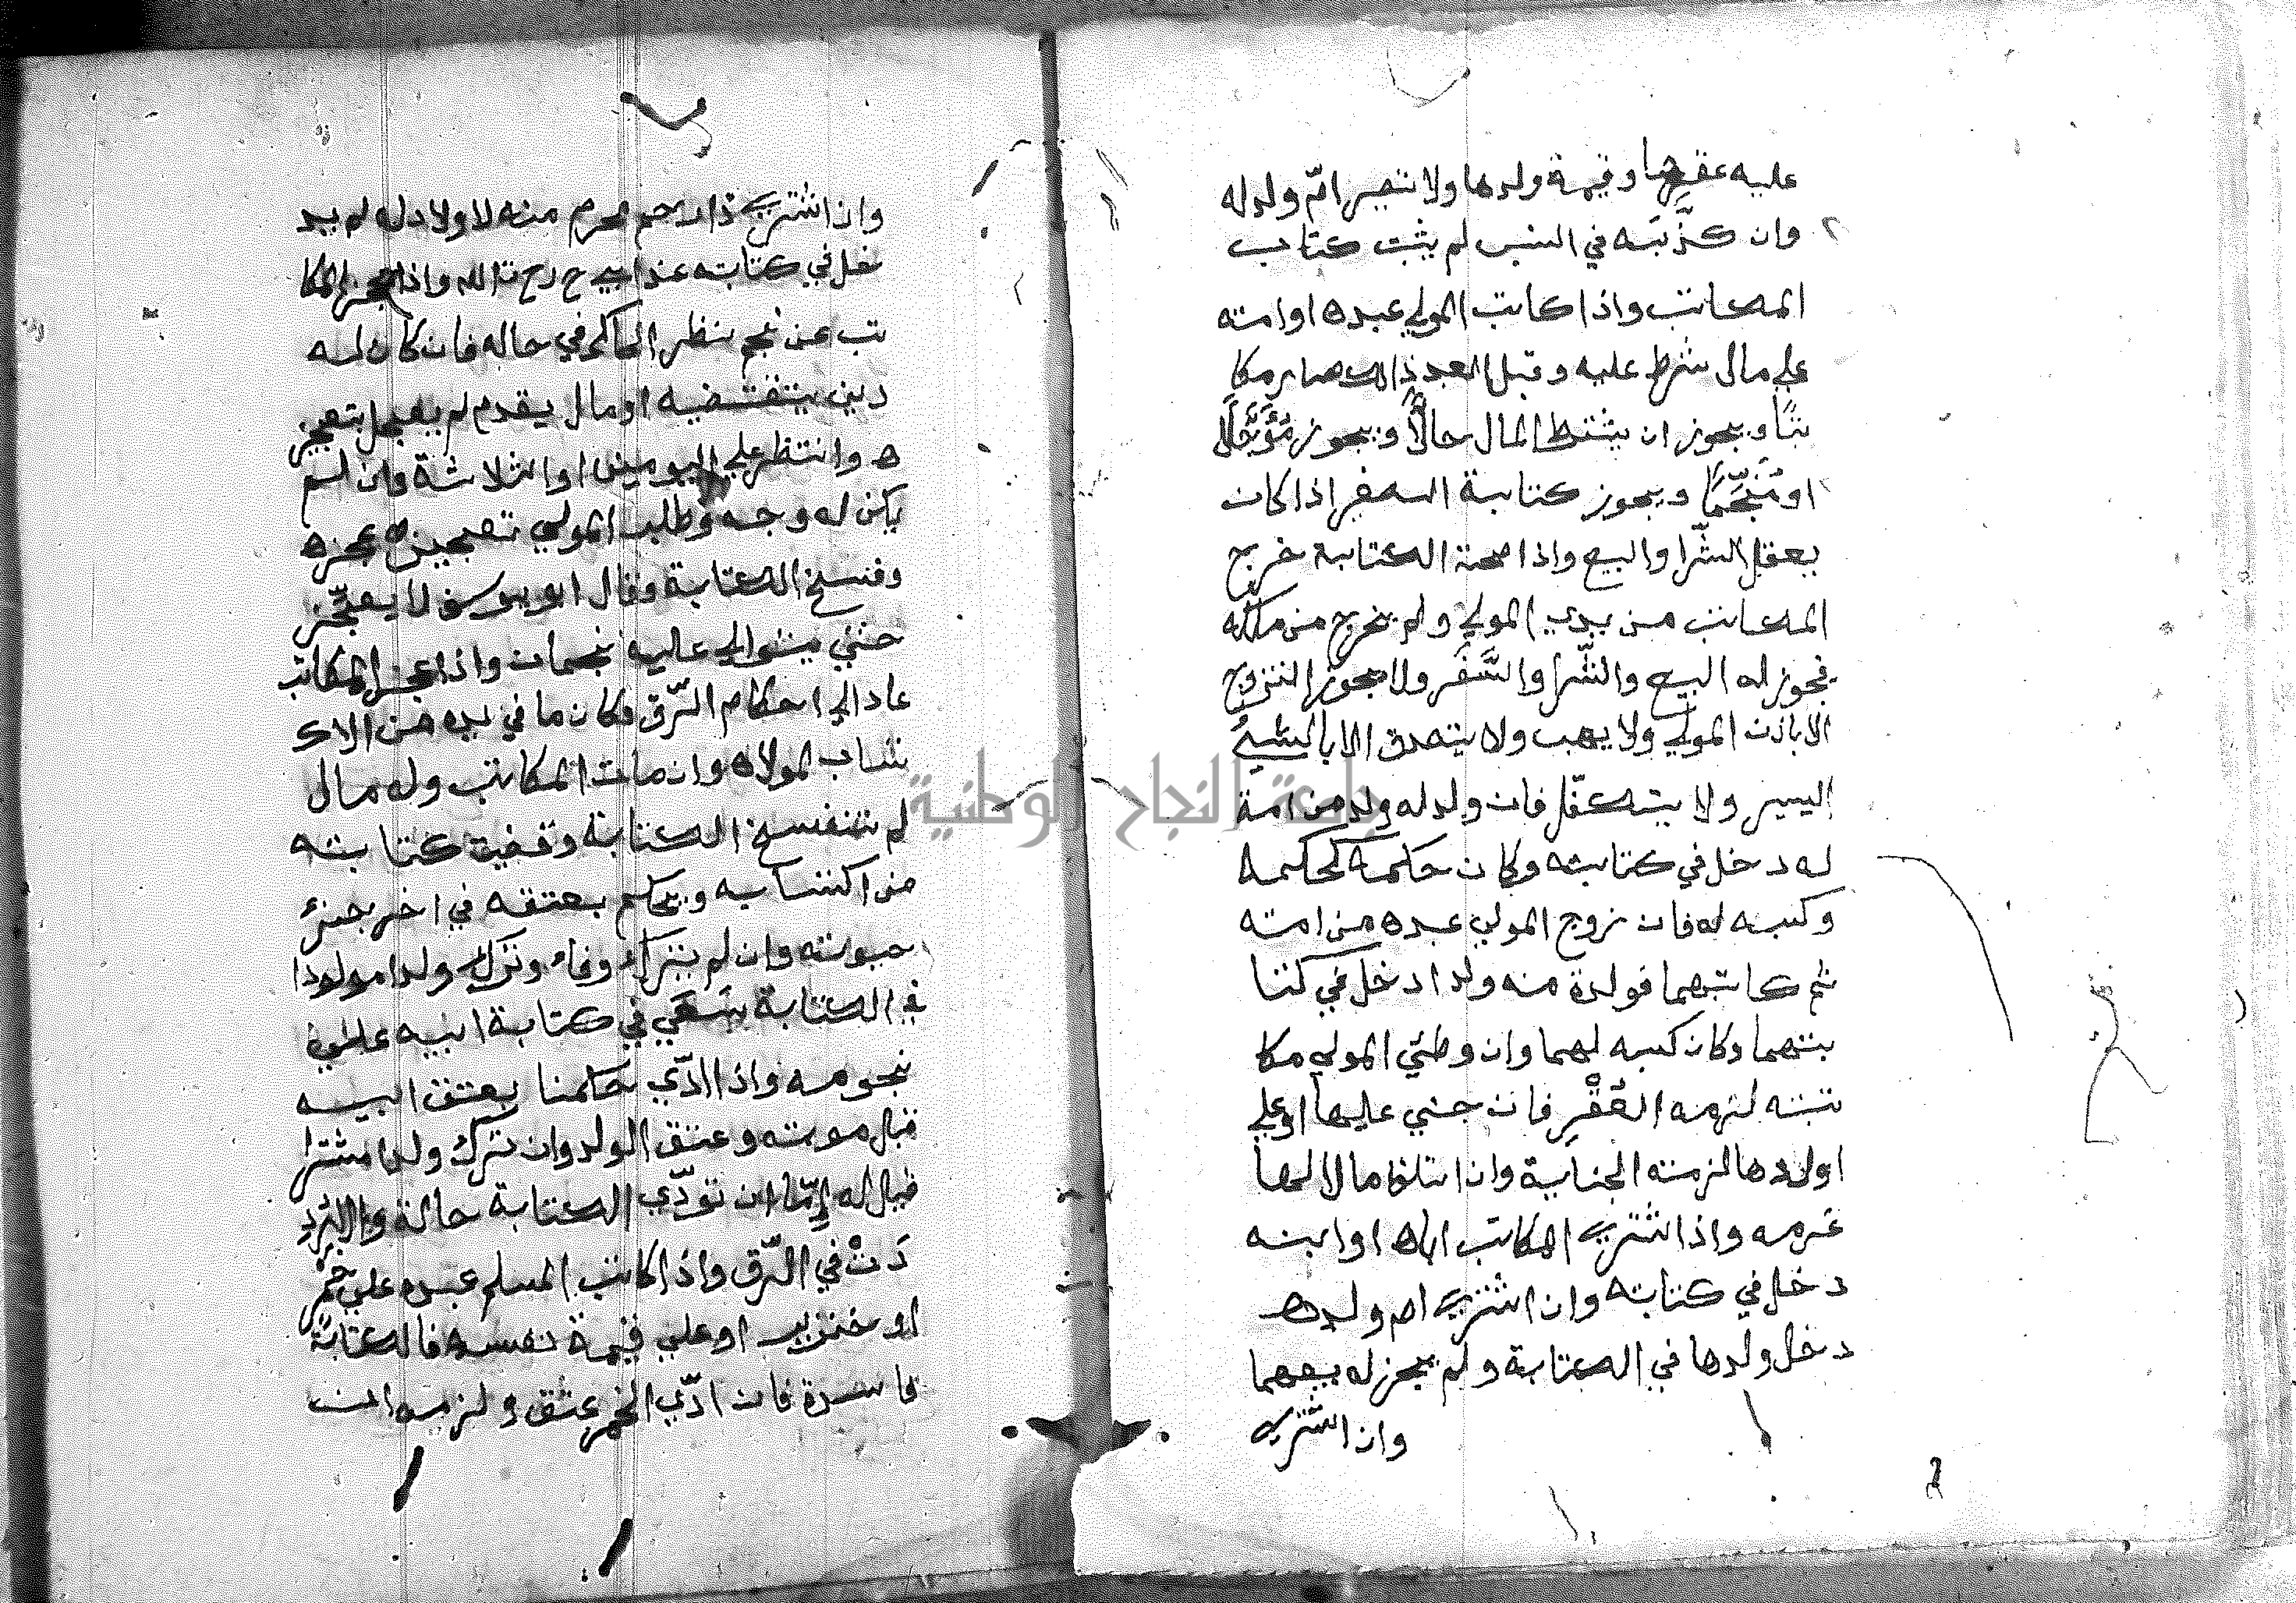 عليه عقرها وقيمة ولدها ولا تصير ام ولد له
وان كذَّبَته في النسب لم يثبت كتاب
المكاتب واذا كاتب المولي عبده او امته
علي مال شرط عليه وقبل العبد ذالك صار مكا
تبًا ويجوز ان يشترط المال حالًّا ويجوز مُؤَجَّلًا
او مُنَجَّمًا ويجوز كتابة الصغير اذا كان
يعقل الشّرا والبيع واذا صحة الكتابة خرج
المكاتب من يدي المولي ولم يخرج من ملكه
فجوز له البيع والشّرا والسَّفَر ولا يجوز التزوج
الا باذن المولي ولا يهب ولا يتصدق الا بالشيءِ
اليسير ولا يتكفّل فان ولد له ولد من امة
له دخل في كتابته وكان حكمه كحكمه
وكسبه له فان زوج المولي عبده من امته
ثم كاتبهما فولدة منه ولدا دخل في كتا
بتهما وكان كسبه لهما وان وطئي المولي مكا
تبته لزمه العُقْر فان جني عليها او علي
اولدها لزمته الجناية وان اتلفا مالا لها
غرمه واذا اشتري المكاتب اباه او ابنه
دخل في كتابته وان اشتري ام ولده
دخل ولدها في الكتابة ولم يجز له بيعهما
وان اشتري
وان اشتري ذا رحم محرم منه لا ولاد له لم يد
خل في كتابته عند ابي ح رح ته الله واذا عجز المكا
تب عن نجم ينظر الحاكم في حاله فان كان له
دين يتقتضيه او مال يقدم لم يعجل بتعجيز
ه وانتظر علي اليومين او الثلاثة وان لم
يكن له وجه وطلب المولي تعجيزه عجزه
وفسخ الكتابة وقال ابو يوسف لا يعجّز
حتي يتوالي عليه نجمان واذا عجز المكاتب
عاد الي احكام الرّق فكان ما في يده من الاك
تساب لمولاه وان مات المكاتب وله مال
لم تنفسخ الكتابة وقضيت كتابته
من اكتسابه ويحكم بعتقه في اخر جزء
حيوته وان لم يترك وفاء وترك ولدا مولودا
في الكتابة سَعَي في كتابة ابيه علي
نجومه واذا ادّي حكمنا بعتق ابيه
قبل موته وعتق الولد وان ترك ولدا مشترا
قيل له إمّا ان تودّي الكتابة حالة والا رُد
دَتْ في الرّق واذا كاتب المسلم عبده علي خمر
او خنزير او علي قيمة نفسه فالكتابة
فاسدة فان ادّي الخمر عتق ولزمه ان
جامعة النجاح الوطنية